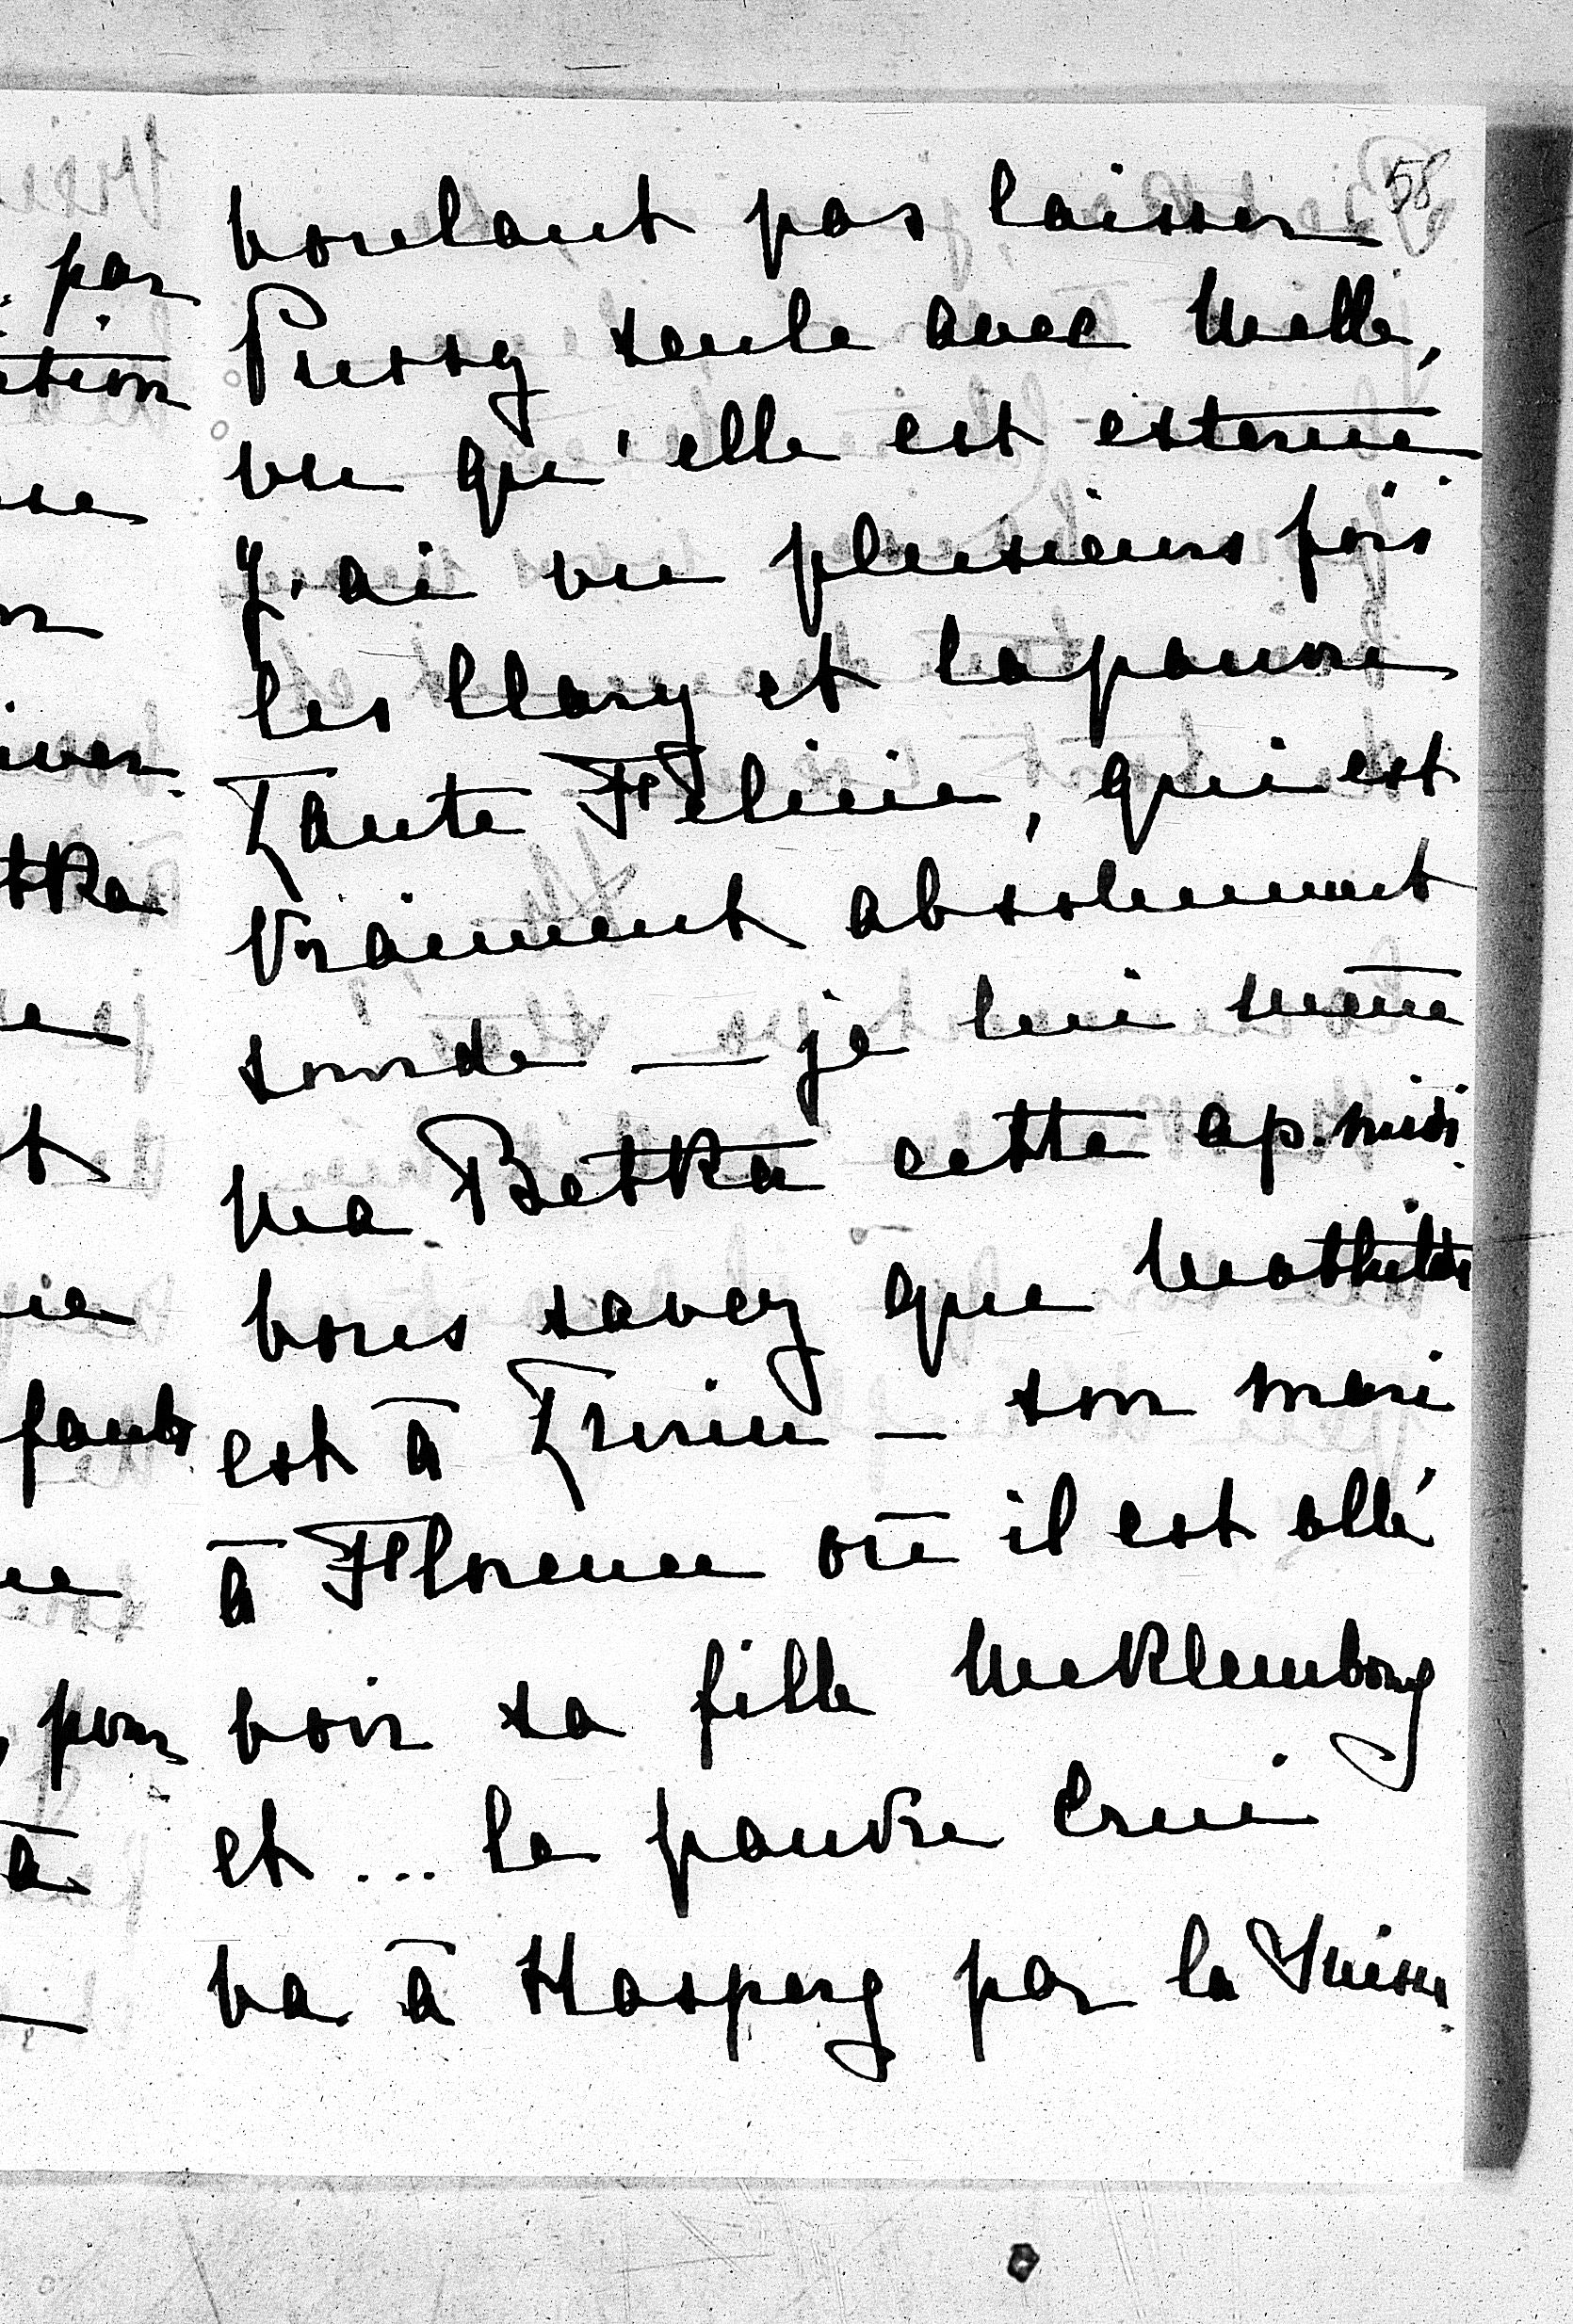 58
voulant pas laisser
Pussy seule avec Melle,
vu qu'elle est exténuée
J'ai vu plusieurs fois
les Clary et la pauvre
Tante Félicie, qui est
vraiment absolument
sourde — je lui mène
ma Betka cette ap. midi.
vous savez que Mathilde
est à Turin — son mari
à Florence où il est allé
voir sa fille Meklembourg
et ... le pauvre Erni
va à Hasperg par la Suisse.
par
tion
se
iver.
tka
e
t
ie
fants
pour
à